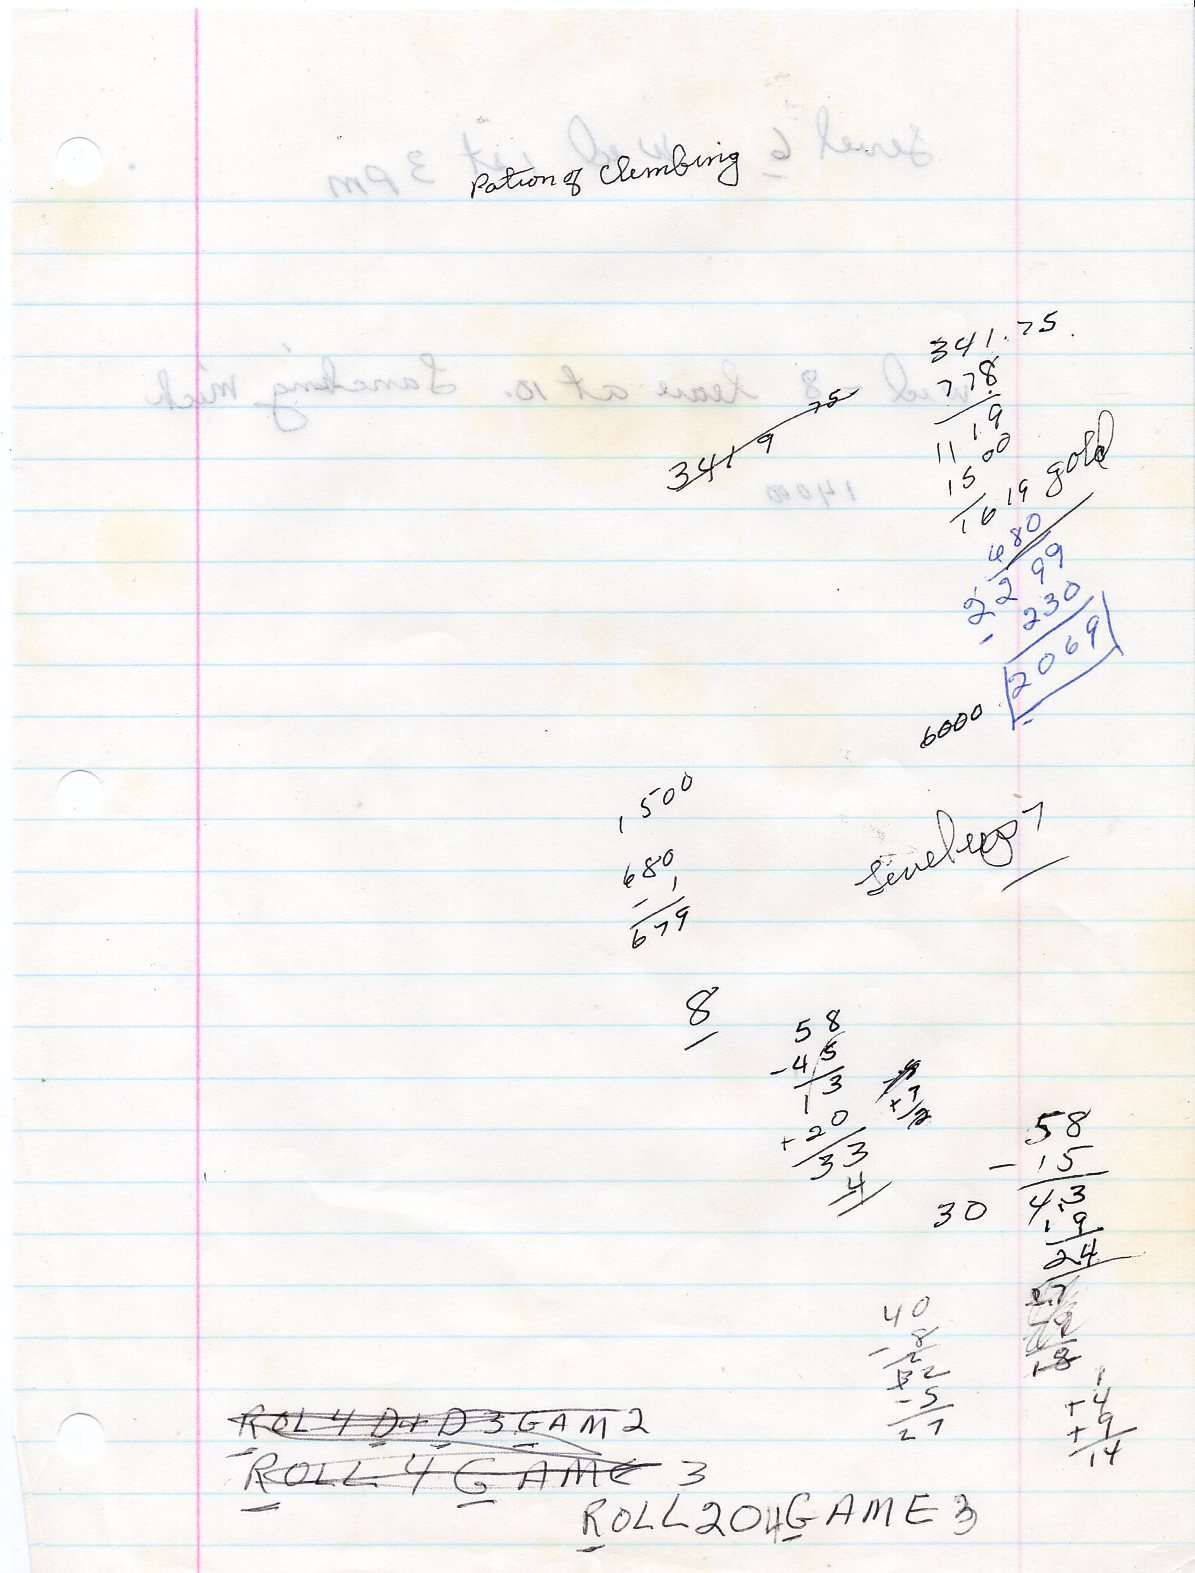 Potion of Clembing
341.75
778
1119
1500
1619 gold
680
2299
- 230
2069
3419 75
6000
1,500
680
- 1
679
8
58
- 45
13
+ 20
33
4
58
- 15
43
19
24
30
40
- 8
32
- 5
27
18
1
+ 4
+ 9
14
ROL4D+D3GAM2
ROLL4GAME 3
ROLL204GAME3